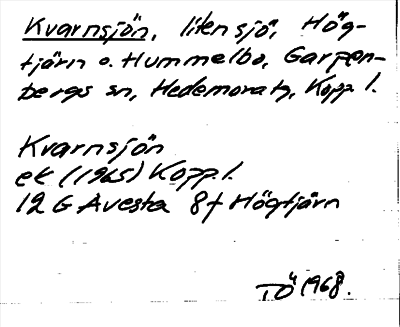 Kvarnsjön, liten sjö, Hög-
tjärn o. Hummelbo, Garpen-
bergs sn, Hedemora tg, Kopp l.
Kvarnsjön
ek (1965) Kopp. l.
12 G Avesta 8f Högtjärn
TÖ 1968.